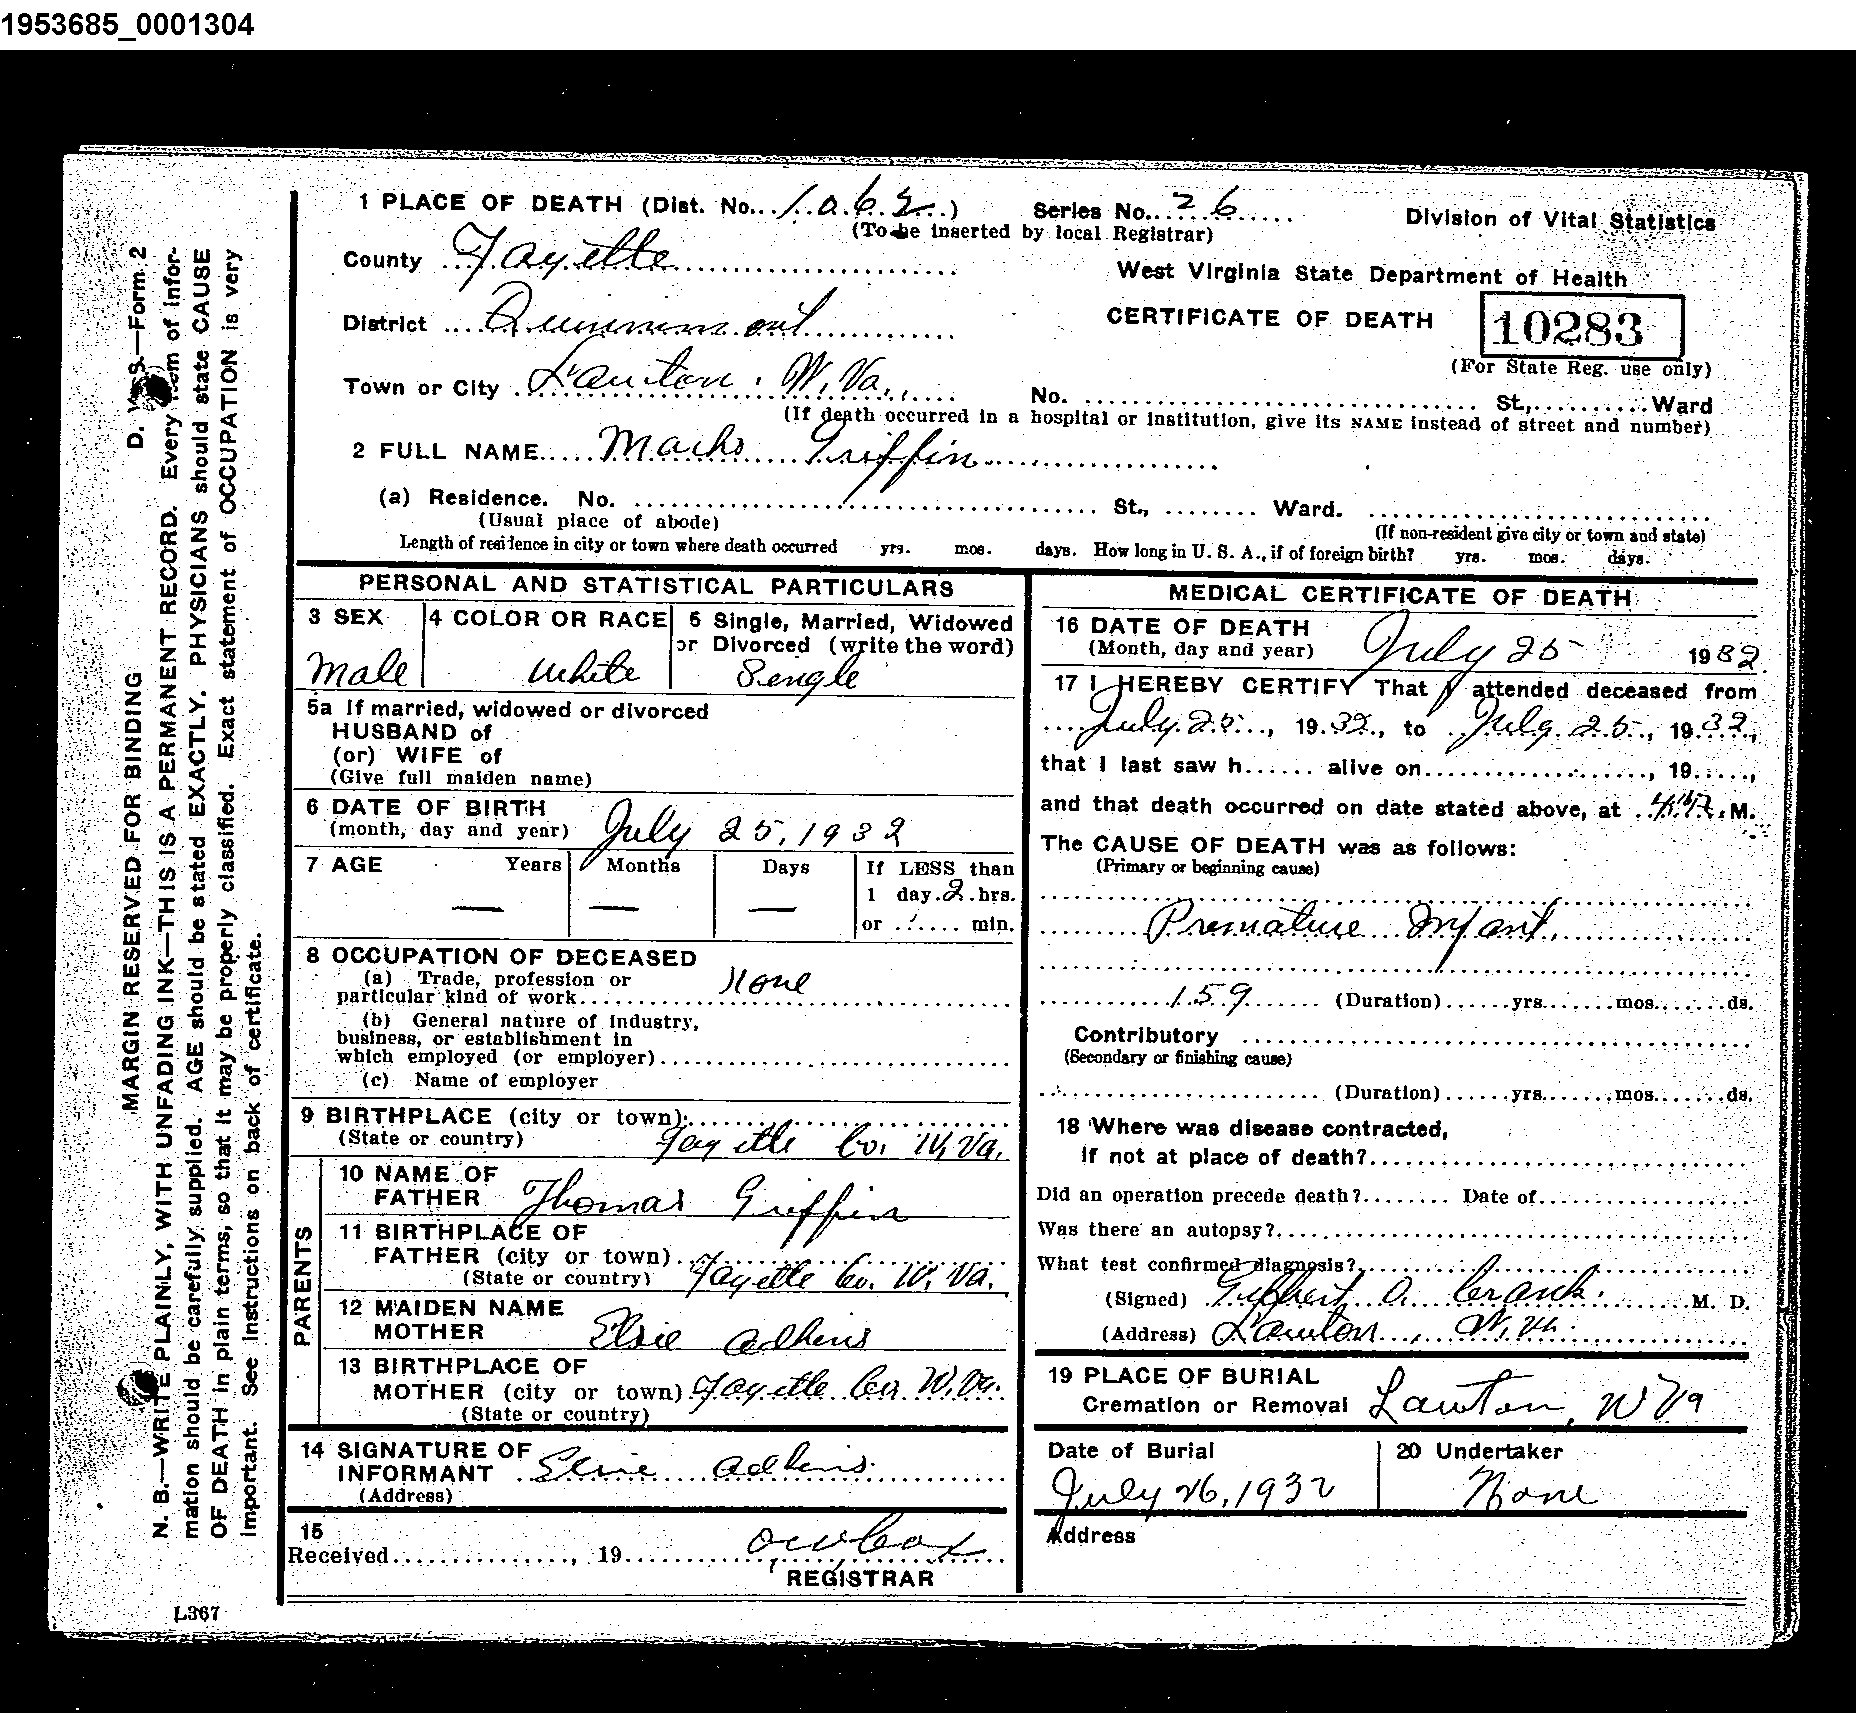 1953685_0001304
1 PLACE OF DEATH (Dist. No. 1062) Series No. 26 Division of Vital Statistics
(To be inserted by local Registrar)
County Fayette West Virginia State Department of Health
District Quinnimont CERTIFICATE OF DEATH 10283
(For State Reg. use only)
Town or City Lawton, W. Va. No. St., Ward
(If death occurred in a hospital or institution, give its NAME instead of street and number)
2 FULL NAME Griffin
(a) Residence. No. St., Ward.
(Usual place of abode) (If non-resident give city or town and state)
Length of residence in city or town where death occurred yrs. mos. days. How long in U. S. A., if of foreign birth? yrs. mos. days.
PERSONAL AND STATISTICAL PARTICULARS
3 SEX 4 COLOR OR RACE 5 Single, Married, Widowed
or Divorced (write the word)
Male White Single
5a If married, widowed or divorced
HUSBAND of
(or) WIFE of
(Give full maiden name)
6 DATE OF BIRTH
(month, day and year) July 25, 1932
7 AGE Years Months Days If LESS than
1 day 2 hrs.
— — — or min.
8 OCCUPATION OF DECEASED
(a) Trade, profession or
particular kind of work None
(b) General nature of industry,
business, or establishment in
which employed (or employer)
(c) Name of employer
9 BIRTHPLACE (city or town)
(State or country) Fayette Co. W. Va.
PARENTS
10 NAME OF
FATHER Thomas Griffin
11 BIRTHPLACE OF
FATHER (city or town)
(State or country) Fayette Co. W. Va.
12 MAIDEN NAME
MOTHER Elsie Adkins
13 BIRTHPLACE OF
MOTHER (city or town) Fayette Co. W. Va.
(State or country)
14 SIGNATURE OF
INFORMANT Elsie Adkins
(Address)
15
Received , 19 O W Cox
REGISTRAR
MEDICAL CERTIFICATE OF DEATH
16 DATE OF DEATH
(Month, day and year) July 25 1932
17 I HEREBY CERTIFY That I attended deceased from
July 25, 1932, to July 25, 1932,
that I last saw h alive on , 19 ,
and that death occurred on date stated above, at M.
The CAUSE OF DEATH was as follows:
(Primary or beginning cause)
Premature Infant.
159 (Duration) yrs. mos. ds.
Contributory
(Secondary or finishing cause)
(Duration) yrs. mos. ds.
18 Where was disease contracted,
if not at place of death?
Did an operation precede death? Date of
Was there an autopsy?
What test confirmed diagnosis?
(Signed) Gilbert O. Crank. M. D.
(Address) Lawton, W. Va.
19 PLACE OF BURIAL
Cremation or Removal Lawton, W Va
Date of Burial 20 Undertaker
July 26, 1932 None
Address
MARGIN RESERVED FOR BINDING D. V. S.—Form 2
N. B.—WRITE PLAINLY, WITH UNFADING INK—THIS IS A PERMANENT RECORD. Every item of infor-
mation should be carefully supplied. AGE should be stated EXACTLY. PHYSICIANS should state CAUSE
OF DEATH in plain terms, so that it may be properly classified. Exact statement of OCCUPATION is very
important. See instructions on back of certificate.
L367